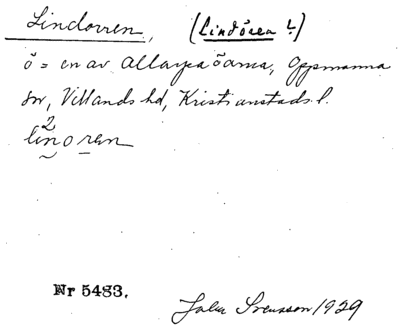 Lindorren, (Lindören L.)
ö = en av Allarpaöarna, Oppmanna
sn, Villands hd, Kristianstads l.
2
linoren
Nr 5483.
John Svensson 1929